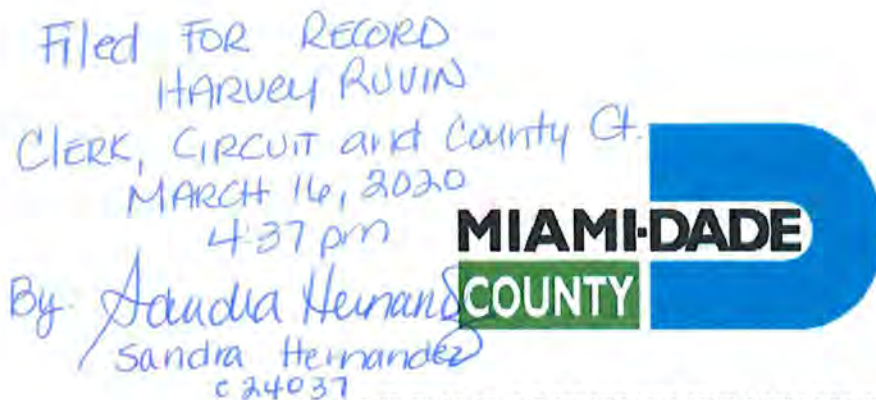 Filed FOR RECORD
HARVEY RUVIN
Clerk, Circuit and County Ct.
MARCH 16, 2020
4:37 pm
By. Sandra Hernandez
Sandra Hernandez
c 24037
MIAMI-DADE
COUNTY